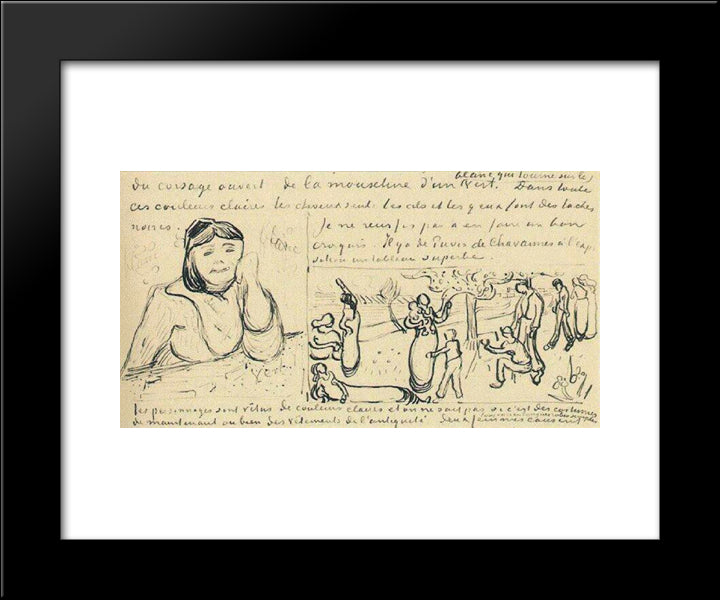 blanc qui tourne sur le
du corsage ouvert de la mousseline d'un vert. Dans toute
ces couleurs claires les cheveux sont les cils et les yeux font des taches
noires.
Je ne réussis pas a en faire un bon
croquis. Il y a de Puvis de Chavannes à l'exp
sition un tableau superbe.
vert
les personnages sont vêtus de couleurs claires et on ne sait pas si c'est des costumes
de maintenant ou bien des vêtements de l'antiquité deux femmes causent